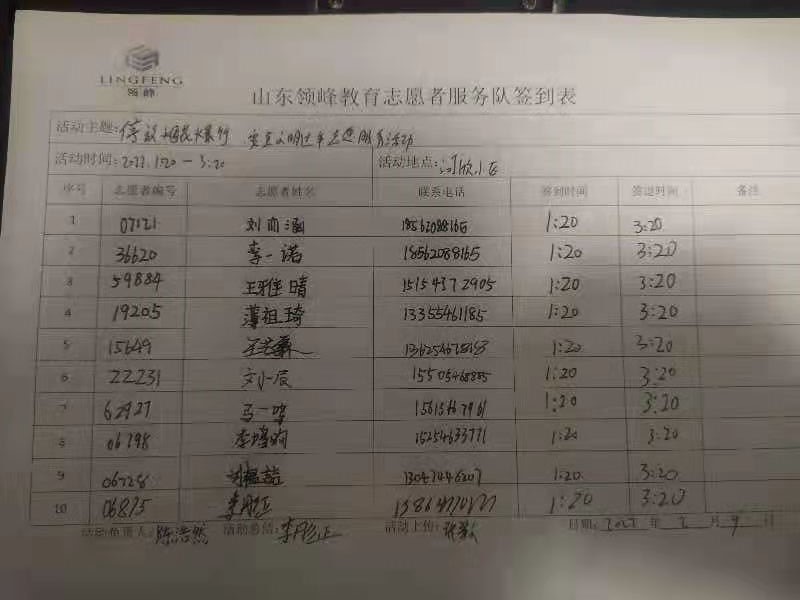 LINGFENG
领峰
山东领峰教育志愿者服务队签到表
活动主题:停放烟花爆竹 文明过年志愿服务活动
活动时间:2022.1:20-3:20 活动地点:河欣小区
序号 志愿者编号 志愿者姓名 联系电话 签到时间 签退时间 备注
1 07121 刘雨涵 18562088165 1:20 3:20
2 36620 李一诺 18562088165 1:20 3:20
3 59884 王雅晴 15154372905 1:20 3:20
4 19205 薄祖琦 13355461185 1:20 3:20
5 15649 1:20 3:20
6 22231 刘小辰 15505468885 1:20 3:20
7 62927 马一鸣 1:20 3:20
8 06798 15254633771 1:20 3:20
9 06728 13047446207 1:20 3:20
10 06875 李彤正 1:20 3:20
活动负责人:陈浩然 活动总结:李彤正 活动上传: 日期: 年 月 9 日